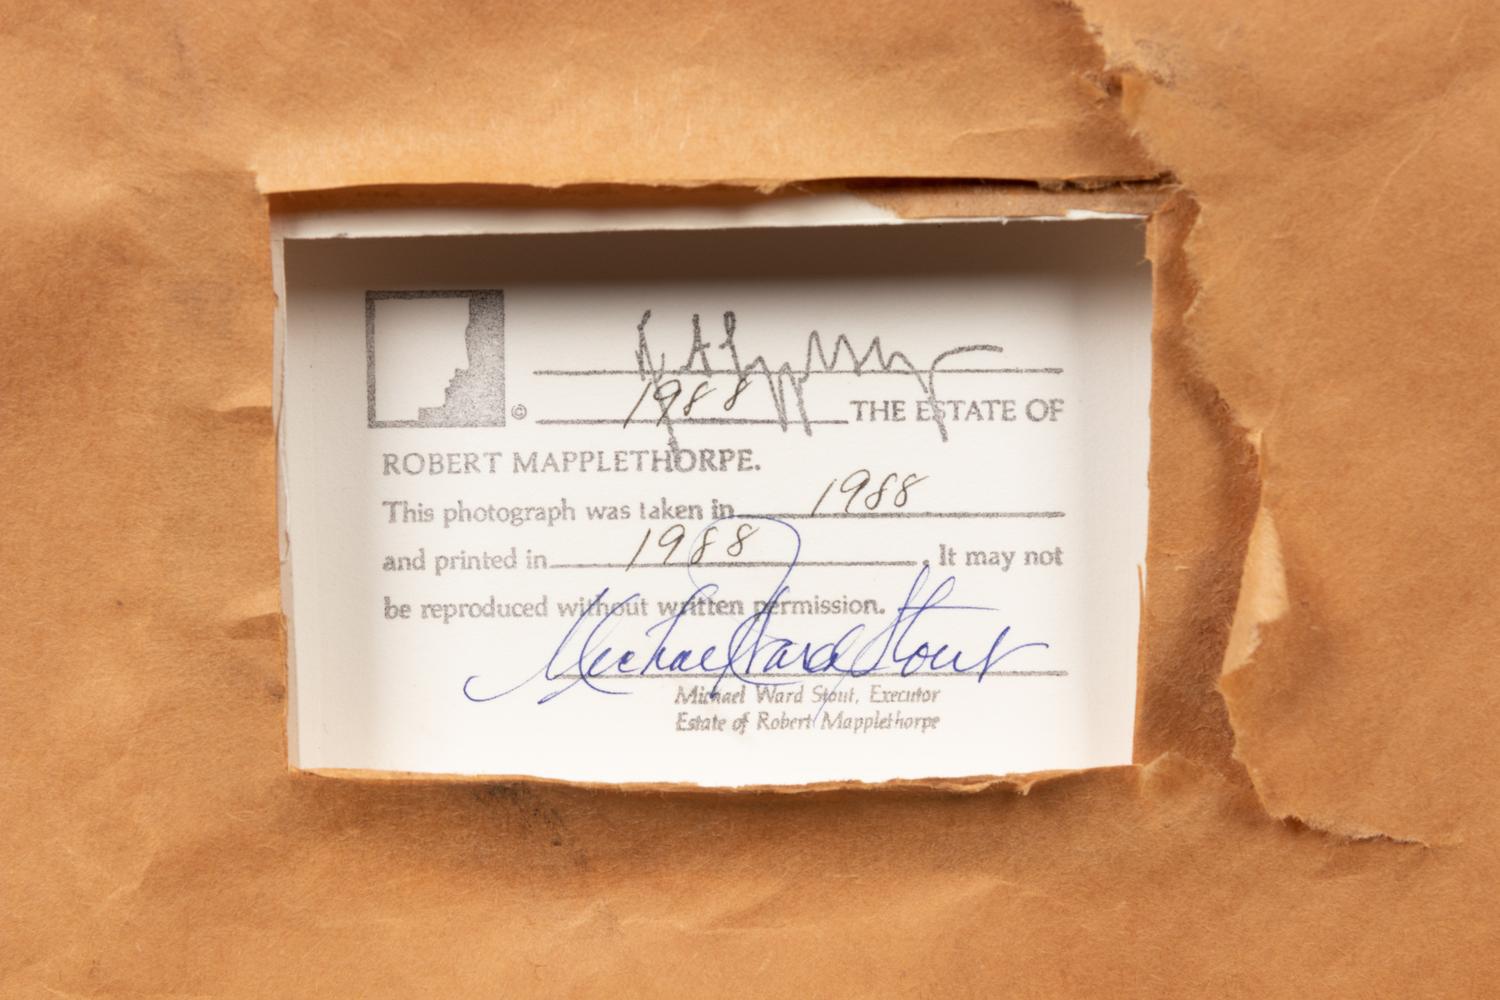 © 1988 THE ESTATE OF
ROBERT MAPPLETHORPE.
This photograph was taken in 1988
and printed in 1988. It may not
be reproduced without written permission.
Michael Ward Stout
Michael Ward Stout, Executor
Estate of Robert Mapplethorpe